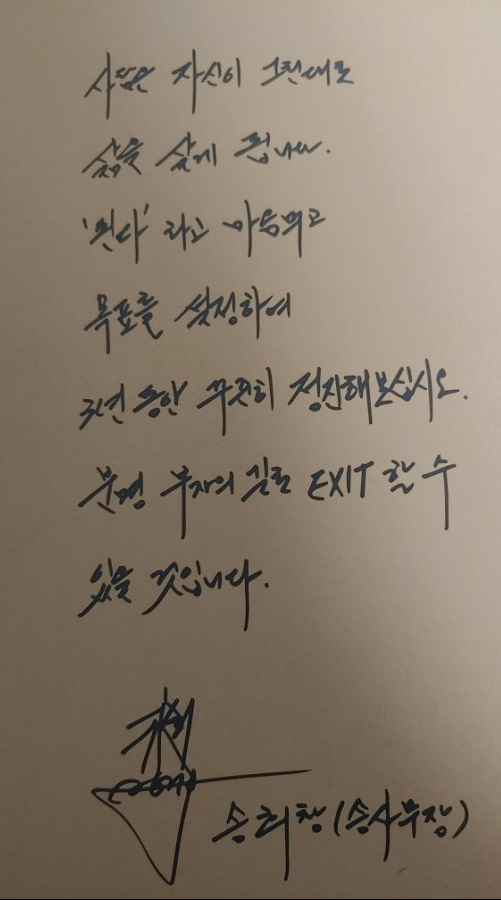 사람은 자신이 그린대로
삶을 살게 됩니다.
'된다' 라고 마음먹고
목표를 설정하여
3년 동안 꾸준히 정진해보십시오.
분명 부자의 길로 EXIT 할 수
있을 것입니다.
송희창(송사무장)